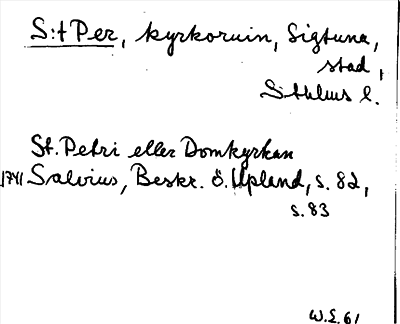 S:t Per, kyrkoruin, Sigtuna,
stad,
Sthlms l.
St. Petri eller Domkyrkan
1741 Salvius, Beskr. ö. Upland, s. 82,
s. 83
W.L. 61